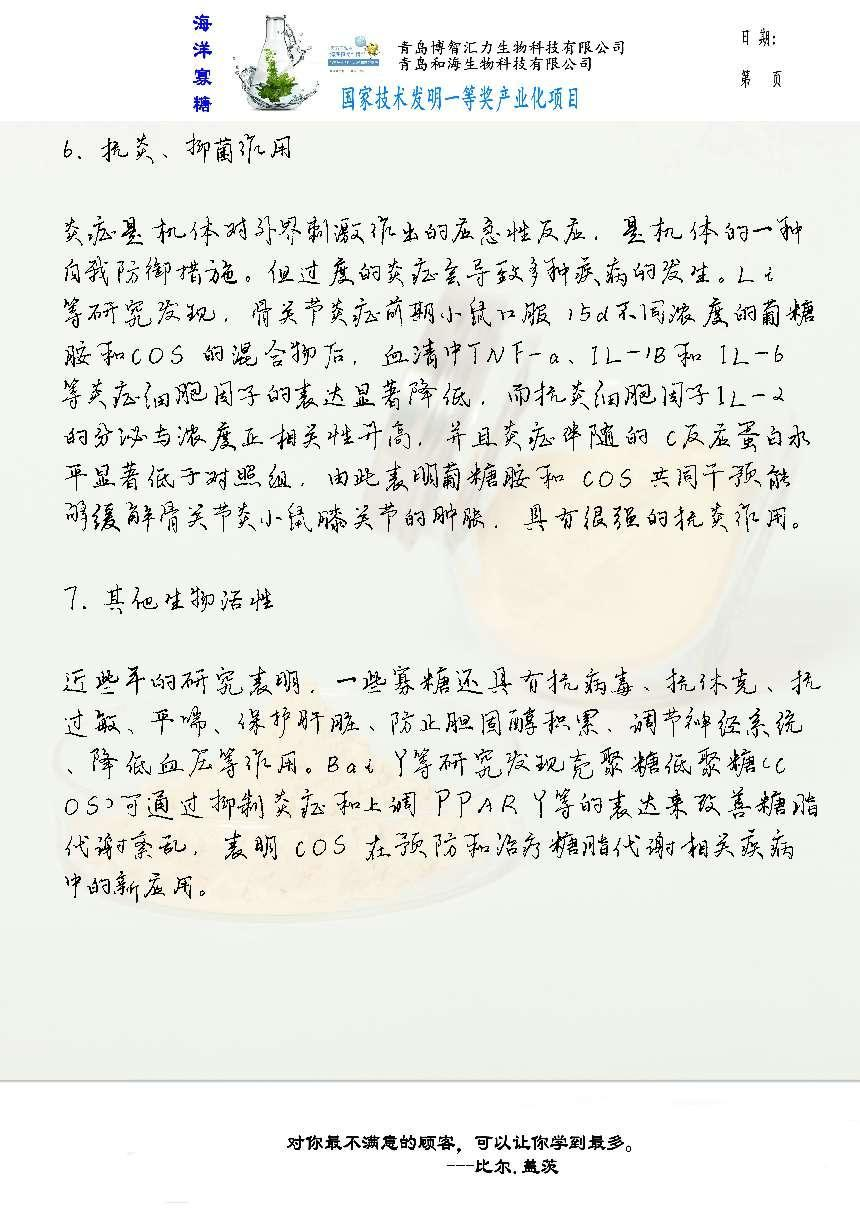 海洋寡糖
青岛博智汇力生物科技有限公司
青岛和海生物科技有限公司
国家技术发明一等奖产业化项目
日期:
第 页
6. 抗炎、抑菌作用
炎症是机体对外界刺激作出的应急性反应，是机体的一种
自我防御措施。但过度的炎症会导致多种疾病的发生。Li
等研究发现，骨关节炎症前期小鼠口服15d不同浓度的葡糖
胺和COS 的混合物后，血清中TNF-a、IL-1B和 IL-6
等炎症细胞因子的表达显著降低，而抗炎细胞因子IL-2
的分泌与浓度正相关性升高，并且炎症伴随的 C反应蛋白水
平显著低于对照组，由此表明葡糖胺和 COS 共同干预能
够缓解骨关节炎小鼠膝关节的肿胀，具有很强的抗炎作用。
7. 其他生物活性
近些年的研究表明，一些寡糖还具有抗病毒、抗休克、抗
过敏、平喘、保护肝脏、防止胆固醇积累、调节神经系统
、降低血压等作用。Bai 丫等研究发现壳聚糖低聚糖(C
OS)可通过抑制炎症和上调 PPAR 丫等的表达来改善糖脂
代谢紊乱，表明 COS 在预防和治疗糖脂代谢相关疾病
中的新应用。
对你最不满意的顾客，可以让你学到最多。
---比尔.盖茨